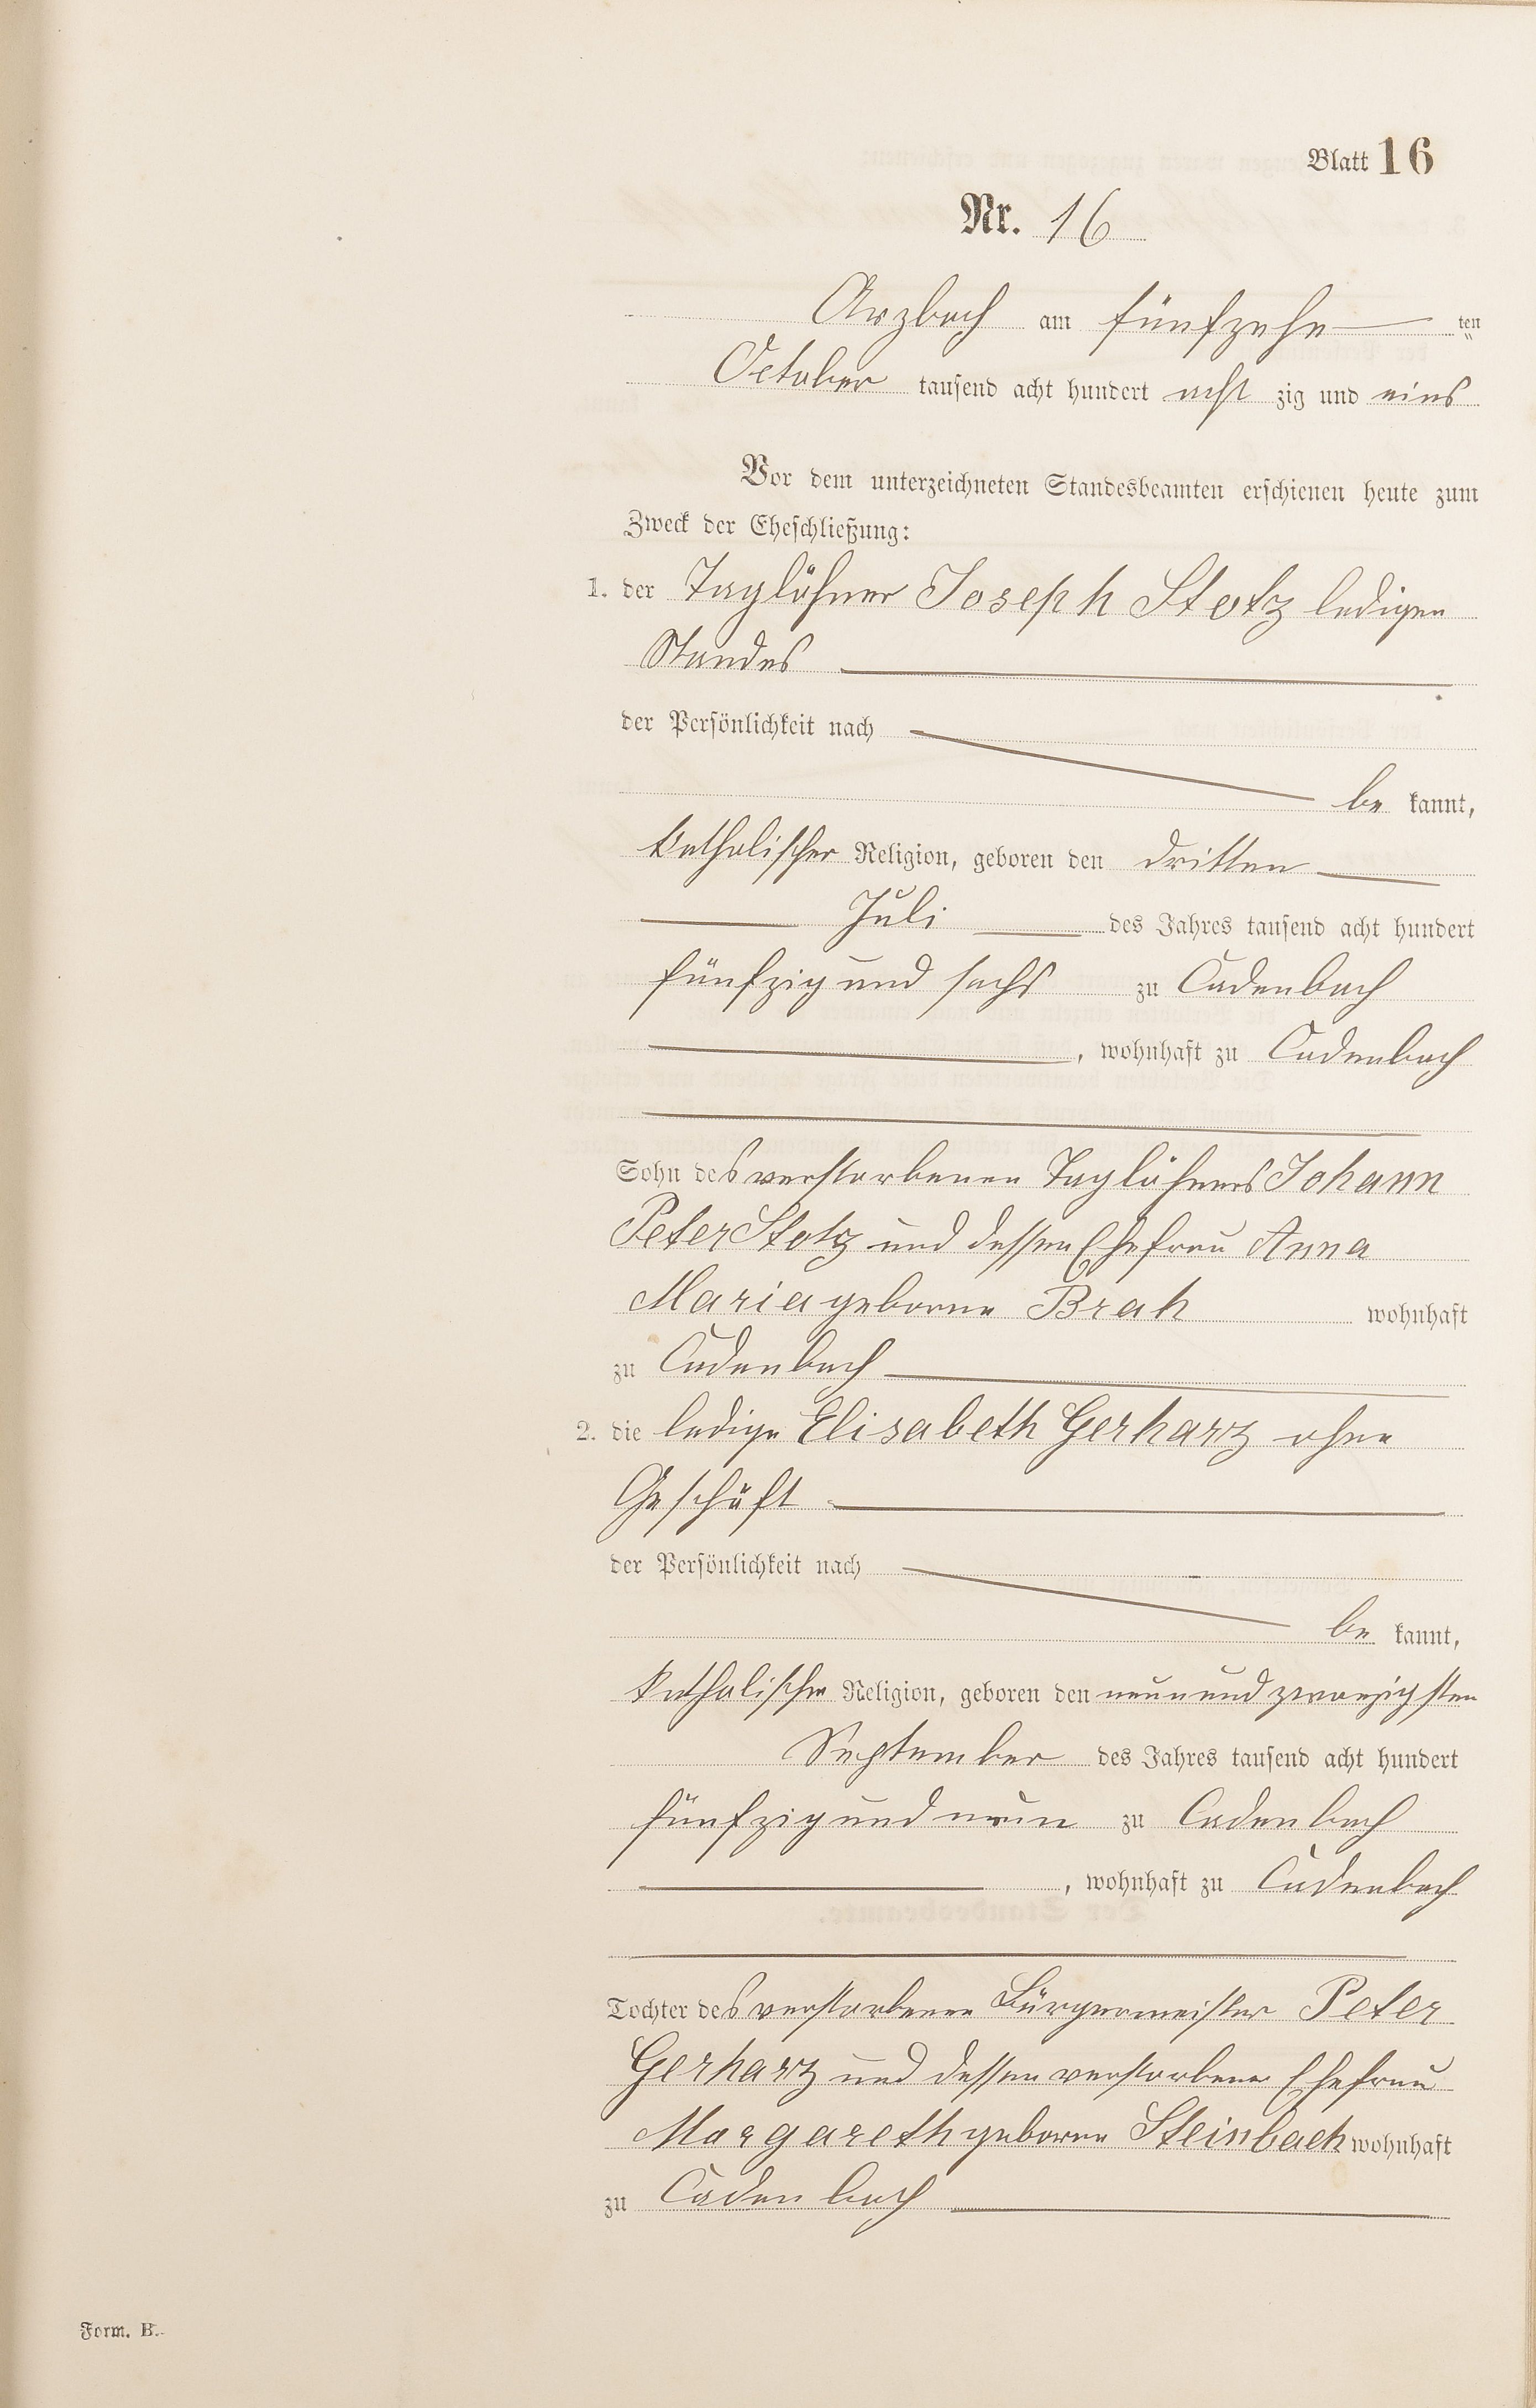 Blatt 16
Nr. 16
Arzbach am fünfzehn ten
October tausend acht hundert acht zig und eins
Vor dem unterzeichneten Standesbeamten erschienen heute zum
Zweck der Eheschließung:
1. der Taglöhner Joseph Stotz ledigen
Standes
der Persönlichkeit nach
be kannt,
katholischer Religion, geboren den dritten
Juli des Jahres tausend acht hundert
fünfzig und sechs zu Cadenbach
, wohnhaft zu Cadenbach
Sohn des verstorbenen Taglöhners Johann
Peter Stotz und dessen Ehefrau Anna
Maria geborne wohnhaft
zu Cadenbach
2. die ledige Elisabeth Gerharz ohne
Geschäft
der Persönlichkeit nach
be kannt,
katholischer Religion, geboren den neunundzwanzigsten
September des Jahres tausend acht hundert
fünfzig und neun zu Cadenbach
, wohnhaft zu Cadenbach
Tochter des verstorbenen Bürgermeister Peter
Gerharz und dessen verstorbener Ehefrau
Margareth geborne Steinbach wohnhaft
zu Cadenbach
Form. B.